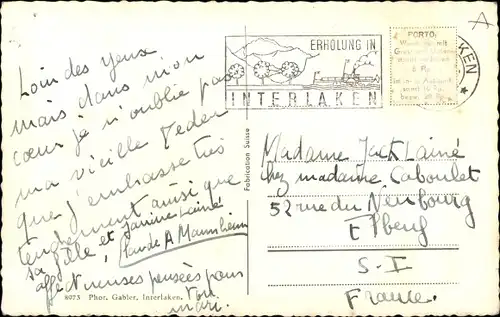 Loin des yeux
mais dans mon
cœur je n'oublie pas
ma vieille
que j'embrasse très
tendrement ainsi que
sa fille et Janine Lainé
Claude A Mannheim
affectueuses pensées pour
ton
mari.
8073 Phot. Gabler, Interlaken.
Fabrication Suisse
ERHOLUNG IN
INTERLAKEN
PORTO
Madame Jack Lainé
chez madame Caboulet
52 rue du Neubourg
Elbeuf
S-I
France.